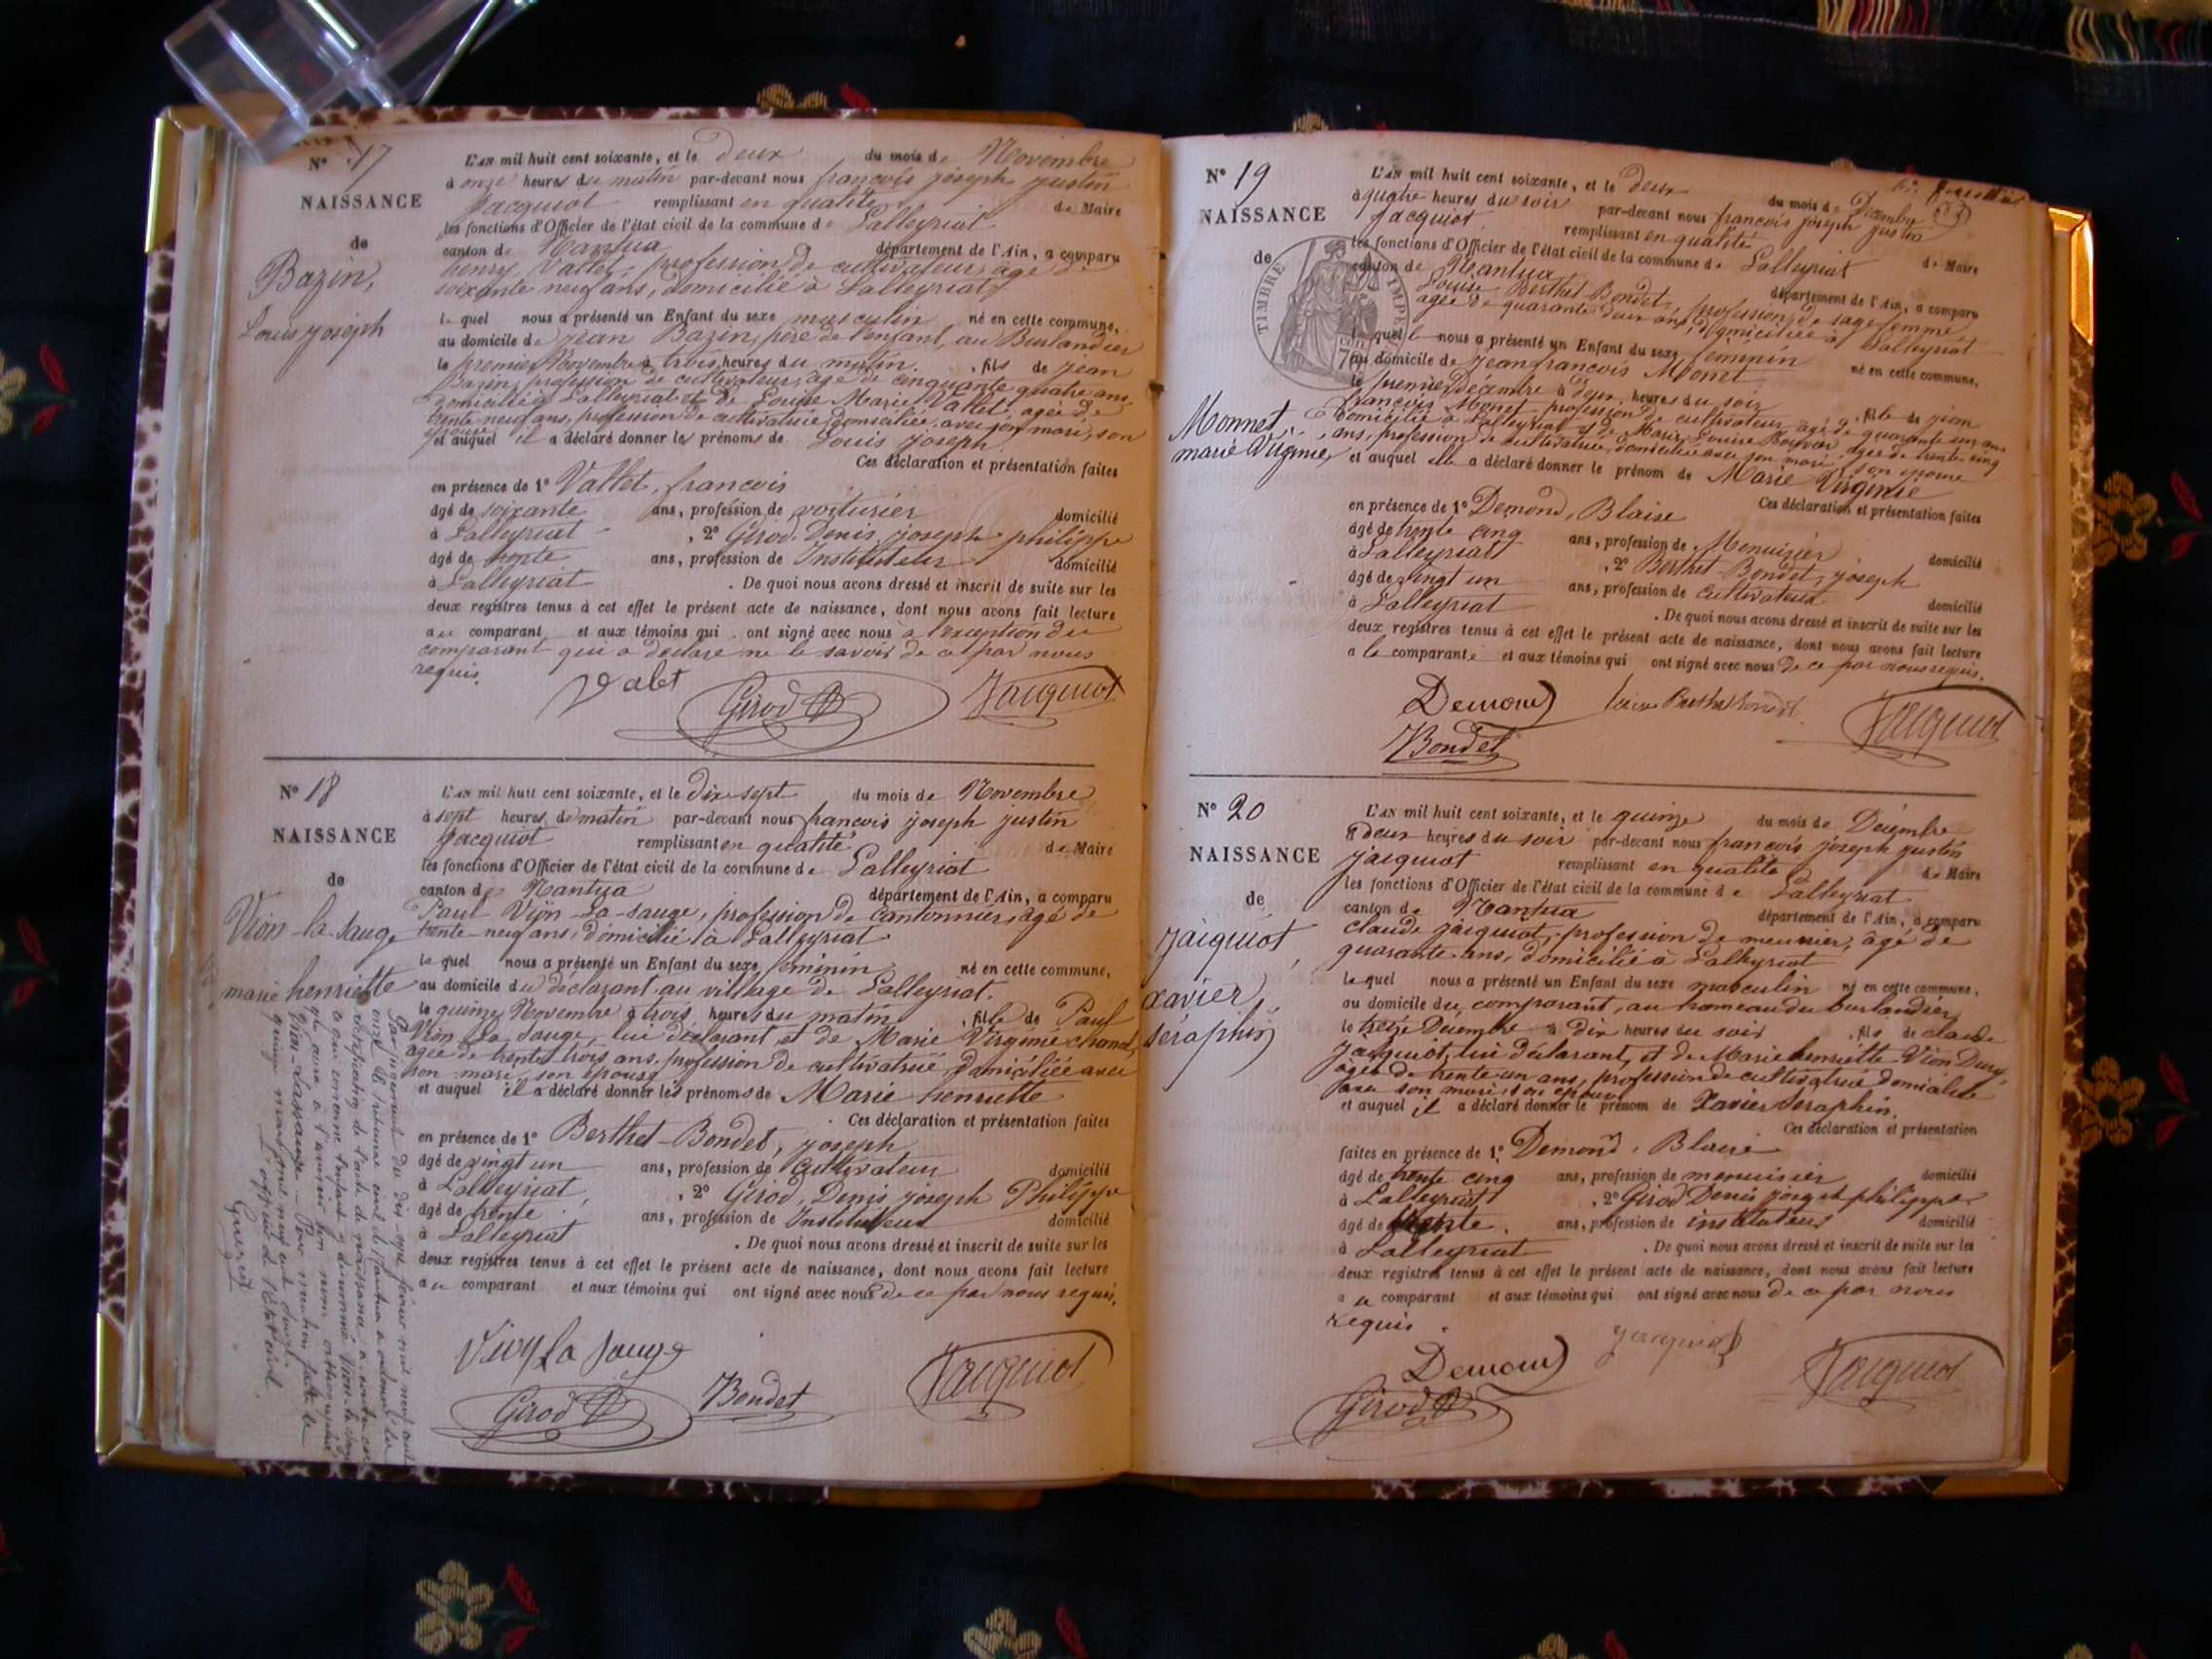 N° 17
NAISSANCE
de
Bazin,
Louis joseph
L'AN mil huit cent soixante, et le deux du mois de Novembre
à onze heures du matin par-devant nous francois joseph justin
Jacquiot remplissant en qualité de Maire
les fonctions d'Officier de l'état civil de la commune de Lalleyriat
canton de Nantua département de l'Ain, a comparu
henry Vallet, profession de cultivateur, âgé de
soixante neuf ans, domicilié à Lalleyriat
le quel nous a présenté un Enfant du sexe masculin né en cette commune,
au domicile de jean Bazin, père de l'enfant, au Burlandier
le premier Novembre à trois heures du matin. , fils de jean
Bazin, profession de cultivateur, âgé de cinquante quatre ans,
domicilié à Lalleyriat et de Louise Marie Vallet, agée de
trente neuf ans, profession de cultivatrice, domiciliée avec son mari, son
épouse,
et auquel il a déclaré donner les prénoms de Louis joseph.
Ces déclaration et présentation faites
en présence de 1° Vallet, francois
âgé de soixante ans, profession de voiturier domicilié
à Lalleyriat , 2° Girod, Denis joseph philippe
âgé de trente ans, profession de Instituteur domicilié
à Lalleyriat . De quoi nous avons dressé et inscrit de suite sur les
deux registres tenus à cet effet le présent acte de naissance, dont nous avons fait lecture
au comparant et aux témoins qui ont signé avec nous à l'exception du
comparant qui a déclaré ne le savoir de ce par nous
requis.
Valet Girod Jacquiot
N° 18
NAISSANCE
de
Vion-la-sauge
marie henriette
L'AN mil huit cent soixante, et le dix-sept du mois de Novembre
à sept heures du matin par-devant nous francois joseph justin
Jacquiot remplissant en qualité de Maire
les fonctions d'Officier de l'état civil de la commune de Lalleyriat
canton de Nantua département de l'Ain, a comparu
Paul Vion-La-sauge, profession de cantonnier, âgé de
trente-neuf ans, domicilié à Lalleyriat
le quel nous a présenté un Enfant du sexe féminin né en cette commune,
au domicile du déclarant au village de Lalleyriat.
le quinze Novembre à trois heures du matin , fille de Paul
Vion La Sauge, lui déclarant et de Marie Virginie
agée de trente trois ans, profession de cultivatrice, domiciliée avec
son mari, son épouse
et auquel il a déclaré donner les prénoms de Marie henriette
Ces déclaration et présentation faites
en présence de 1° Berthet-Bondet, joseph
âgé de vingt un ans, profession de Cultivateur domicilié
à Lalleyriat , 2° Girod, Denis joseph Philippe
âgé de trente ans, profession de Instituteur domicilié
à Lalleyriat . De quoi nous avons dressé et inscrit de suite sur les
deux registres tenus à cet effet le présent acte de naissance, dont nous avons fait lecture
au comparant et aux témoins qui ont signé avec nous de ce par nous requis.
Vion la sauge
Girod Bondet Jacquiot
Par jugement du dix-sept février mil neuf cent
onze le tribunal civil de Nantua a ordonné la
rectification de l'acte de naissance ci-contre en
ce que concerne l'enfant y dénommé Vion la sauge
qui aura à l'avenir son nom orthographié
Vion-Lassauge. Pour mention faite le
quinze mars mil neuf cent douze
L'officier de l'état civil,
N° 19
NAISSANCE
de
Monnet,
marie Virginie,
TIMBRE IMPE
L'AN mil huit cent soixante, et le deux du mois de Décembre
à quatre heures du soir par-devant nous francois joseph justin
Jacquiot remplissant en qualité de Maire
les fonctions d'Officier de l'état civil de la commune de Lalleyriat
canton de Nantua département de l'Ain, a comparu
Louise Berthet Bondet, profession de sage femme
agée de quarante deux ans, domiciliée à Lalleyriat
le quel nous a présenté un Enfant du sexe féminin né en cette commune,
au domicile de jean francois Monet
le premier Décembre à deux heures du soir , fille de jean
francois Monet profession de cultivateur, âgé de quarante un ans
domicilié à Lalleyriat et de Marie Louise Bouvier agée de trente cinq
ans, profession de cultivatrice, domiciliée avec son mari, son épouse
et auquel elle a déclaré donner le prénom de Marie Virginie
Ces déclaration et présentation faites
en présence de 1° Demond, Blaise
âgé de trente cinq ans, profession de Menuisier domicilié
à Lalleyriat , 2° Berthet Bondet, joseph
âgé de vingt un ans, profession de cultivateur domicilié
à Lalleyriat . De quoi nous avons dressé et inscrit de suite sur les
deux registres tenus à cet effet le présent acte de naissance, dont nous avons fait lecture
a la comparante et aux témoins qui ont signé avec nous de ce par nous requis.
Demond Louise Berthet Bondet Jacquiot
Bondet
N° 20
NAISSANCE
de
jacquiot,
xavier,
séraphin
L'AN mil huit cent soixante, et le quinze du mois de Décembre
à deux heures du soir par-devant nous francois joseph justin
jacquiot remplissant en qualité de Maire
les fonctions d'Officier de l'état civil de la commune de Lalleyriat
canton de Nantua département de l'Ain, a comparu
claude jacquiot, profession de meunier, âgé de
quarante ans, domicilié à Lalleyriat
le quel nous a présenté un Enfant du sexe masculin né en cette commune,
au domicile du comparant, au hameau du burlandier
le treize Décembre à dix heures du soir , fils de claude
Jacquiot, lui déclarant, et de Marie henriette Vion Dury,
agée de trente un ans, profession de cultivatrice domiciliée
avec son mari, son épouse
et auquel il a déclaré donner le prénom de Xavier Séraphin.
Ces déclaration et présentation
faites en présence de 1° Demond, Blaise
âgé de trente cinq ans, profession de menuisier domicilié
à Lalleyriat , 2° Girod Denis joseph philippe
âgé de trente. ans, profession de instituteur domicilié
à Lalleyriat . De quoi nous avons dressé et inscrit de suite sur les
deux registres tenus à cet effet le présent acte de naissance, dont nous avons fait lecture
au comparant et aux témoins qui ont signé avec nous de ce par nous
requis.
Demond jacquiot Jacquiot
Girod